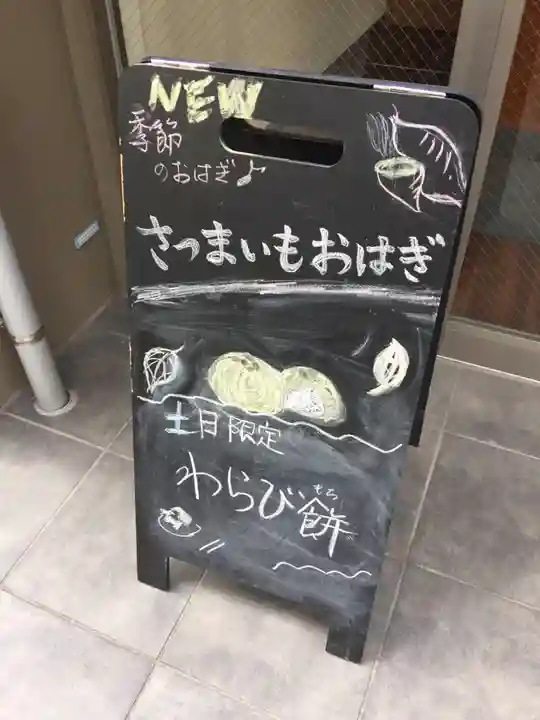 NEW
季節
のおはぎ♪
さつまいもおはぎ
土日限定
わらび餅
もち